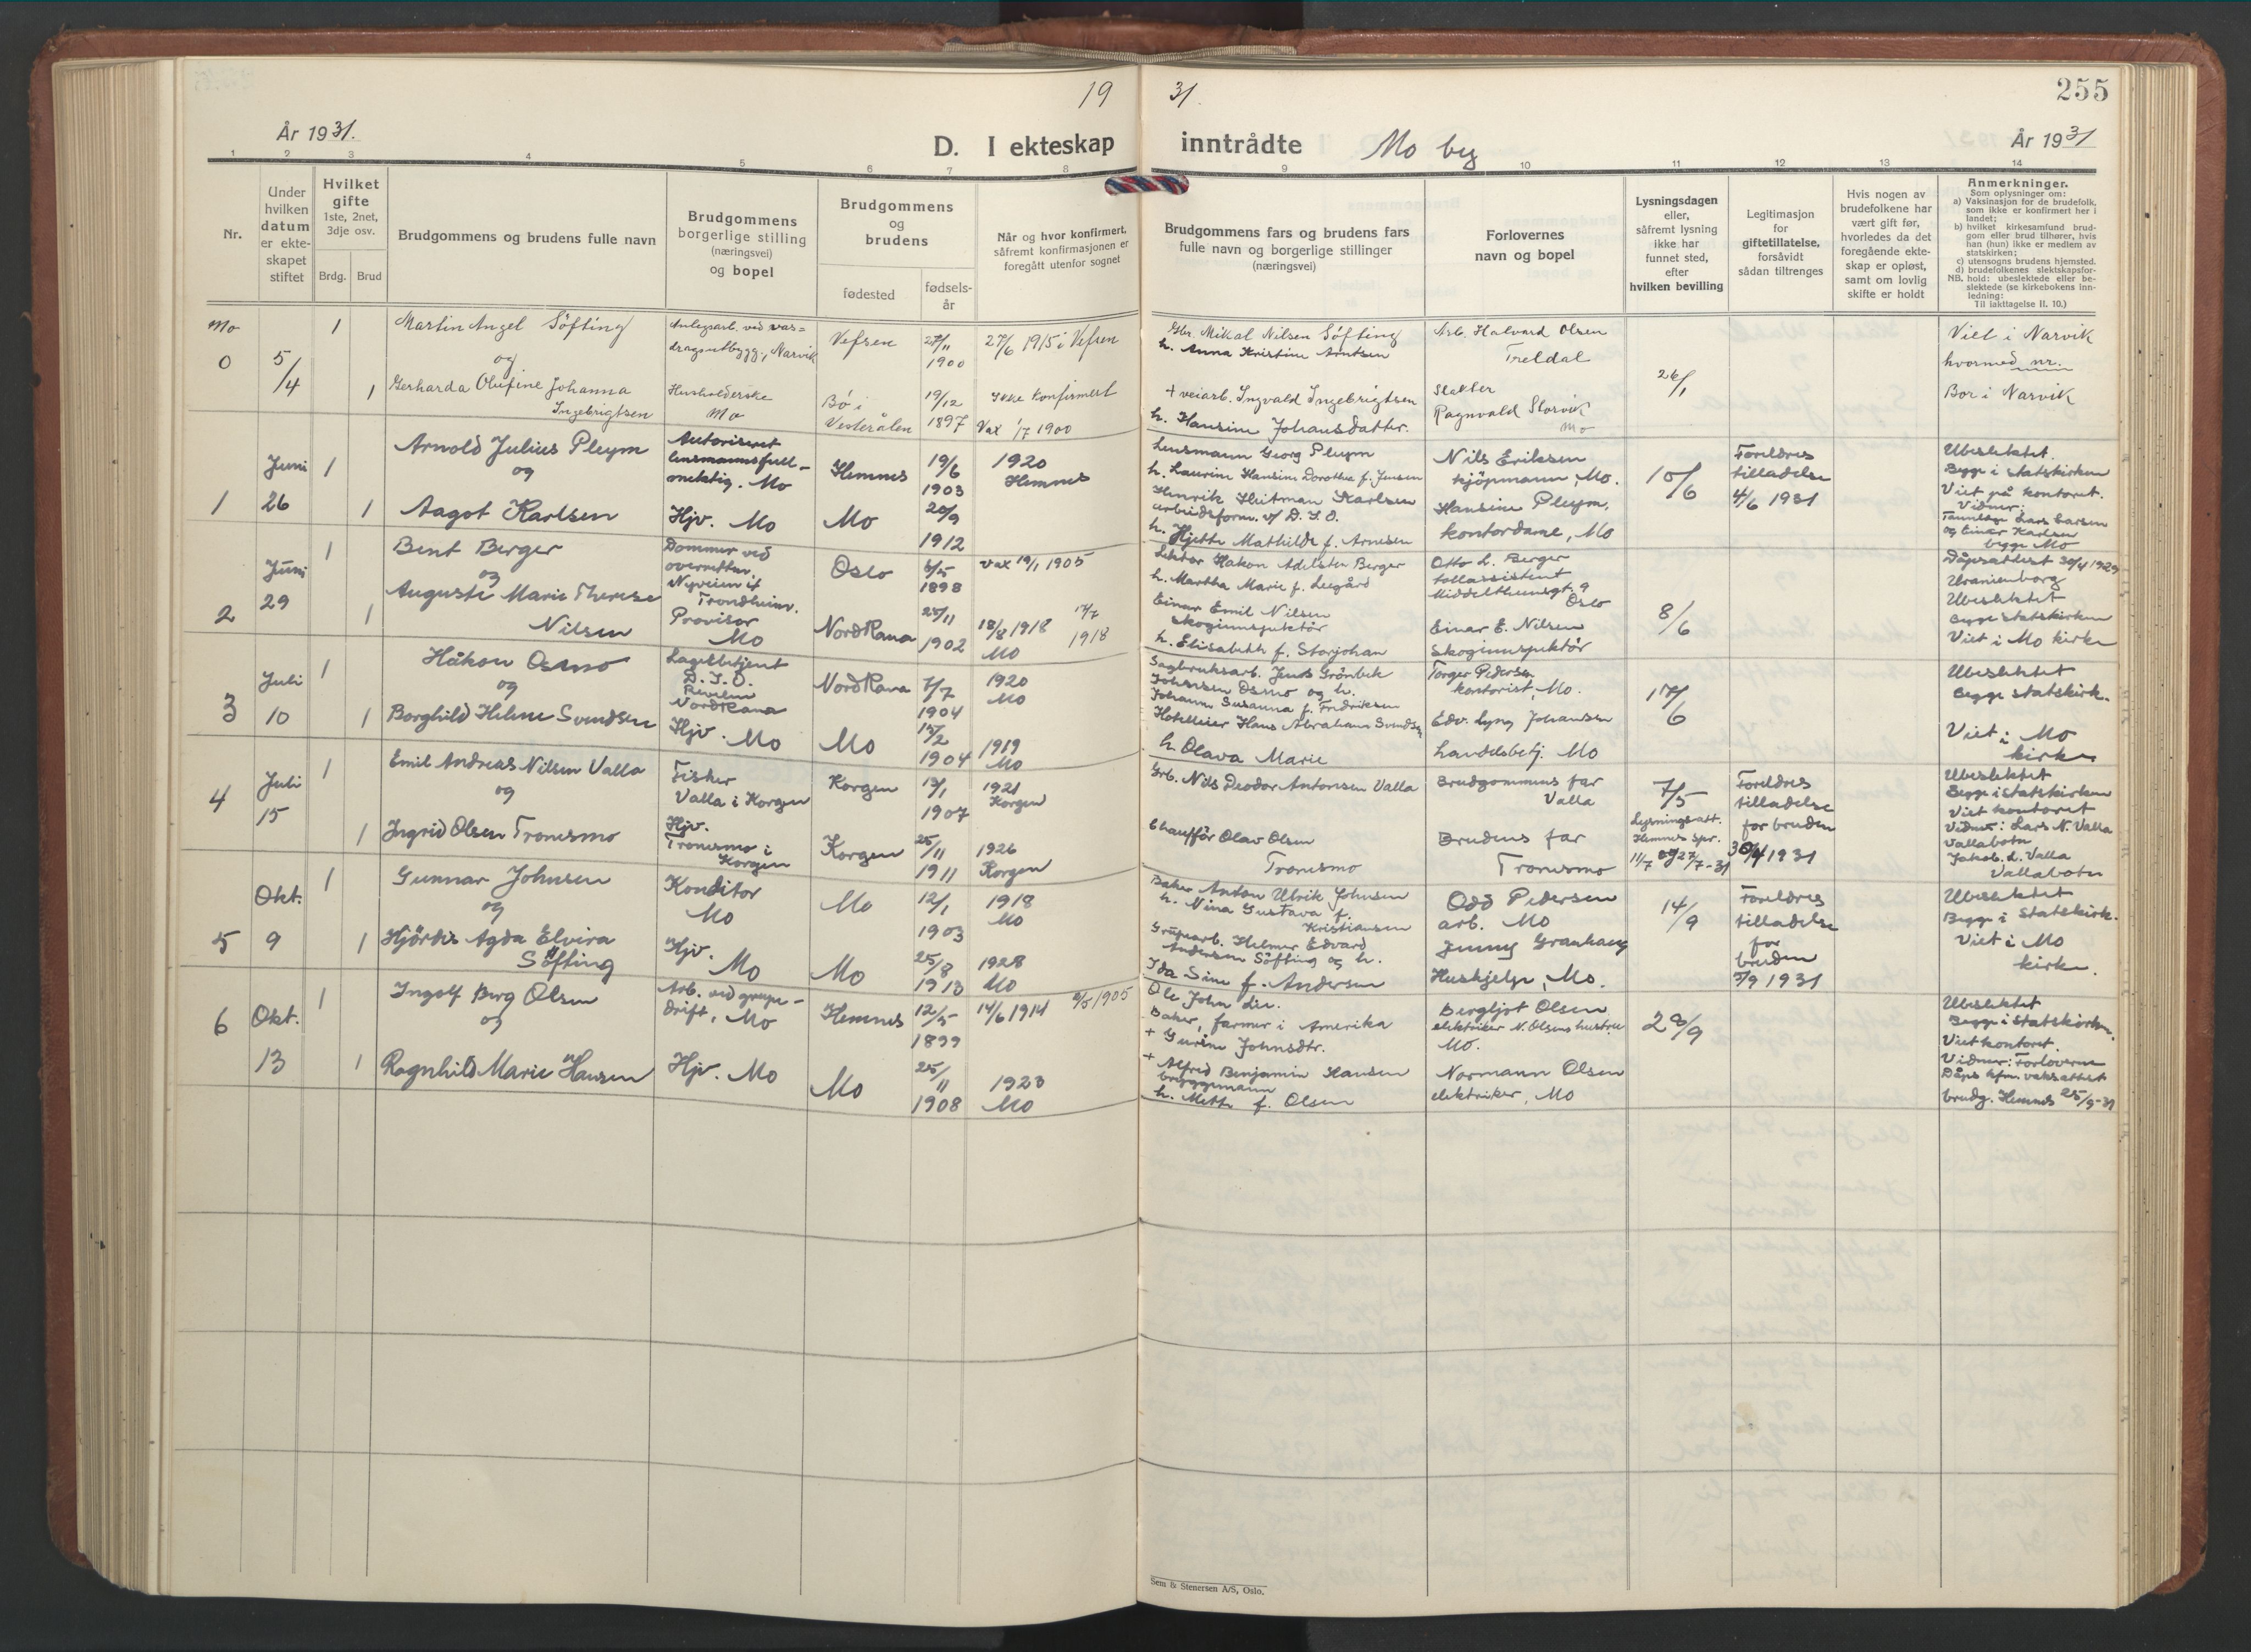 19
31.
255
År 1931.
D. I ekteskap
inntrådte
Mo by
År 1931
1 2 3 4 5 6 7 8 9 10 11 12 13 14
Nr.
Under hvilken datum er ekteskapet stiftet
Hvilket gifte 1ste, 2net, 3dje osv.
Brdg.
Brud
Brudgommens og brudens fulle navn
Brudgommens borgerlige stilling (næringsvei) og bopel
Brudgommens og brudens
fødested
fødselsår
Når og hvor konfirmert, såfremt konfirmasjonen er foregått utenfor sognet
Brudgommens fars og brudens fars fulle navn og borgerlige stillinger (næringsvei)
Forlovernes navn og bopel
Lysningsdagen eller, såfremt lysning ikke har funnet sted, efter hvilken bevilling
Legitimasjon for giftetillatelse, forsåvidt sådan tiltrenges
Hvis nogen av brudefolkene har vært gift før, hvorledes da det foregående ekteskap er opløst, samt om lovlig skifte er holdt
Anmerkninger.
Som oplysninger om:
a) Vaksinasjon for de brudefolk, som ikke er konfirmert her i landet;
b) hvilket kirkesamfund brudgom eller brud tilhører, hvis han (hun) ikke er medlem av statskirken;
c) utensogns brudens hjemsted.
d) brudefolkenes slektskapsforhold: ubeslektede eller beslektede (se kirkebokens innledning:
NB.
Til iakttagelse II. 10.)
Mo
0
5/4
1
Martin Angel Söfting
og
1
Gerharda Olufine Johanna
Ingebrigtsen
Anlegsarb. ved vas=
dragsutbygg., Narvik
Husholderske
Mo
Vefsen
Bö i
Vesterålen
27/11
1900
19/12
1897
27/6 1915 i Vefsen
Ikke konfirmert
Vax 1/7 1900
Gbr. Mikal Nilsen Söfting
h. Anna Kristine Arntsen
+ veiarb. Ingvald Ingebrigtsen
h. Hansine Johansdatter.
Arb. Halvard Olsen
Treldal
Slakter
Ragnvald Storvik
Mo
26/1
Viet i Narvik
hvormed nr.
Bor i Narvik
1
Juni
26
1
Arnold Julius Pleym
og
1
Aagot Karlsen
Autoriseret
lensmannsfull-
mektig. Mo
Hjv. Mo
Hemnes
Mo
19/6
1903
20/9
1912
1920
Hemnes
Lensmann Georg Pleym
h. Laurine Hansine Dorothea f. Jensen
Henrik Hitman Karlsen
arbeidsform. v/ D. I. O.
h. Hjette Mathilde f. Arnesen
Nils Eriksen
kjöpmann, Mo.
Hansine Pleym,
kontordame, Mo
10/6
Foreldres
tilladelse
4/6 1931
Ubeslektet.
Begge i statskirken
Viet på kontoret.
Vidner:
Tannlege Lars Larsen
og Einar Karlsen
begge Mo
2
Juni
29
1
Bent Berger
og
1
Auguste Marie Therese
Nilsen
Dommer ved
overretten,
Nyveien
Trondheim.
Provisor
Mo
Oslo
Nord Rana
1898
25/11
1902
vax 19/1 1905
18/8 1918
Mo
1918
Lektor Håkon Adelsten Berger
h. Martha Marie f. Leegård
Einar Emil Nilsen
Skoginnspektör
h. Elisabeth f. Storjohan
Otto L. Berger
tollassistent
Middelthunsgt. 9
Oslo
Einar E. Nilsen
Skoginnspektör
8/6
Dåpsattest 30/4 1929
Uranienborg
Ubeslektet
Begge statskirken
Viet i Mo kirke
3
Juli
10
1
Håkon Osmo
og
1
Borghild Helene Svendsen
Lagerbetjent
D. I. O.
Nord Rana
Hjv. Mo
Nord Rana
Mo
7/7
1904
15/2
1904
1920
Mo
1919
Mo
Sagbruksarb. Jens Grönbek
Johansen Osmo og h.
Johanne Susanna f. Fredriksen
Hotelleier Hans Abraham Svendsen
h. Olava Marie
Torger Pedersen
kontorist, Mo.
Edv. Lyng Johansen
handelsbetj. Mo
17/6
Ubeslektet
Begge statskirk.
Viet i Mo
kirke
4
Juli
15
1
Emil Andreas Nilsen Valla
og
1
Ingrid Olsen Tronesmo
Fisker
Valla i Korgen
Hjv.
Tronesmo i
Korgen
Korgen
Korgen
13/1
1907
25/11
1911
1921
Korgen
1926
Korgen
Grb. Nils Peodor Antonsen Valla
Chaufför Olav Olsen
Tronesmo
Brudgommens far
Valla
Brudens far
Tronesmo
7/5
Lysningsatt.
Hemnes spr.
11/7 og 27/7-31
Foreldres
tilladelse
for bruden
30/4 1931
Ubeslektet
Begge i statskirken
Viet kontoret
Vidner: Lars N. Valla
Vallabotn
Jakob. L. Valla
Vallabotn
5
Okt.
9
1
Gunnar Johnsen
og
1
Hjördis Agda Elvira
Söfting
Konditor
Mo
Hjv.
Mo
Mo
Mo
12/1
1903
25/8
1913
1918
Mo
1928
Mo
Baker Anton Ulrik Johnsen
h. Nina Gustava f.
Kristiansen
Grubearb. Helmer Edvard
Andersen Söfting og h.
Ida Sine f. Andersen
Odd Pedersen
arb. Mo
Jenny Granhaug
Hushjelp, Mo.
14/9
Foreldres
tilladelse
for
bruden
3/9 1931
Ubeslektet
Begge i Statskirk.
Viet i Mo
kirke.
6
Okt.
13
1
Ingolf Berg Olsen
og
1
Ragnhild Marie Hansen
Arb. ved grube-
drift, Mo
Hjv. Mo
Hemnes
Mo
12/5
1899
25/11
1908
14/6 1914
2/5 1905
1923
Mo
Ole John Lie.
Baker, farmer i Amerika
+ Gurine Johnsdtr.
+ Alfred Benjamin Hansen
bryggemann
h. Mette f. Olsen
Bergljot Olsen
elektriker N. Olsens hustru
Mo.
Normann Olsen
elektriker, Mo
28/9
Ubeslektet
Begge i statskirken.
Viet kontoret.
Vidner: Forloverne
Dåps kfm. vaksattest
brudg. Hemnes 25/9-31
Sem & Stenersen A/S, Oslo.